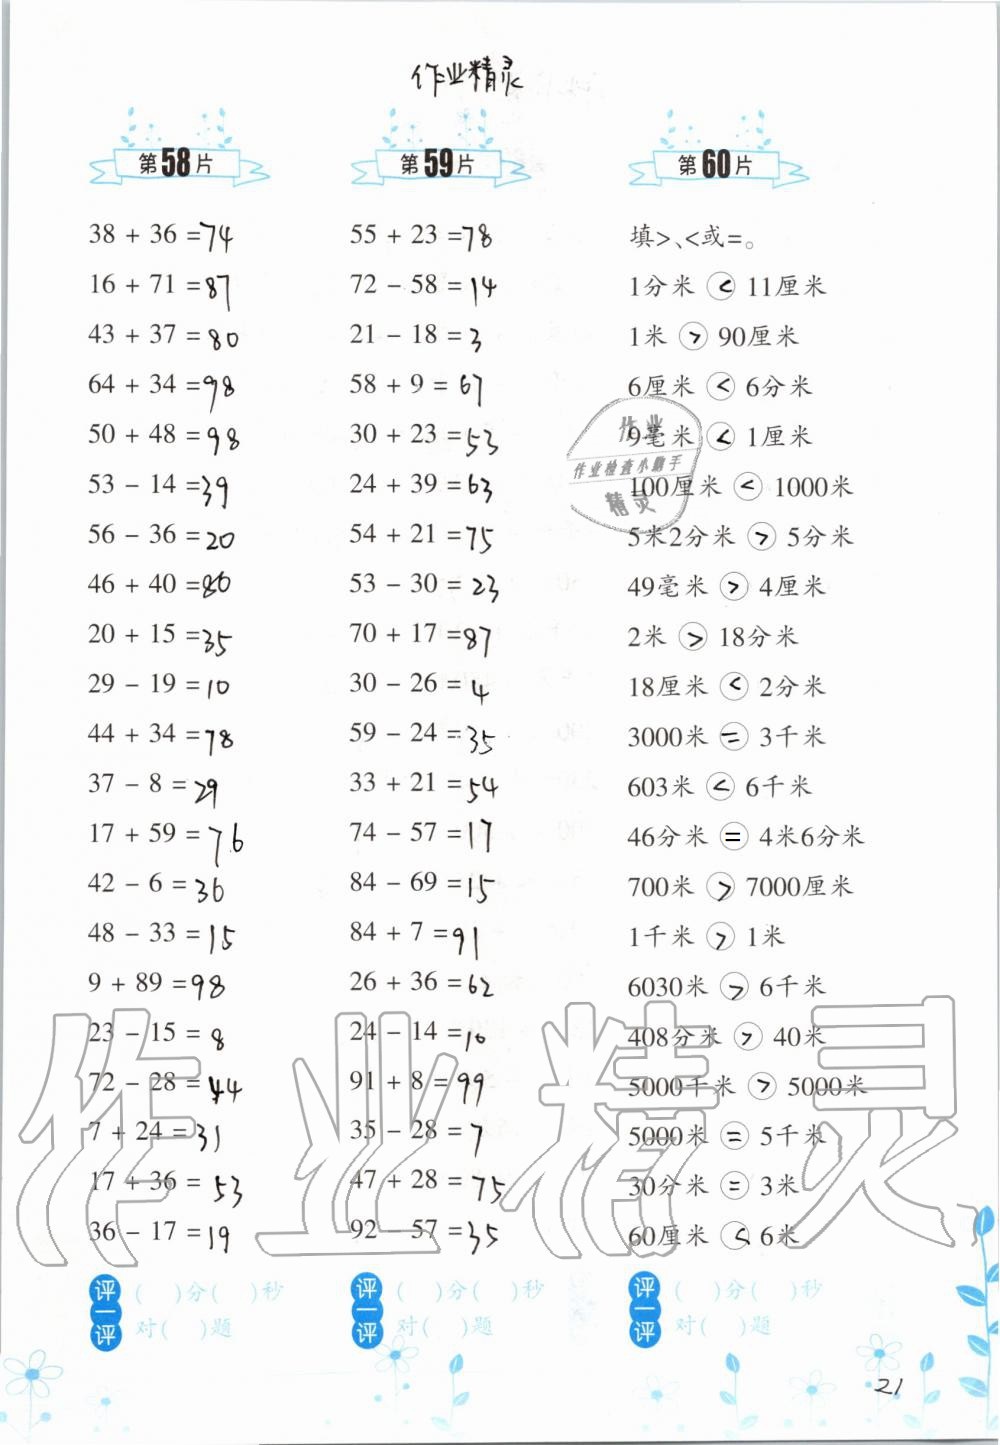 作业精灵
第58片
38 + 36 =74
16 + 71 =87
43 + 37 =80
64 + 34 =98
50 + 48 =98
53 - 14 =39
56 - 36 =20
46 + 40 =86
20 + 15 =35
29 - 19 =10
44 + 34 =78
37 - 8 =29
17 + 59 =76
42 - 6 =36
48 - 33 =15
9 + 89 =98
23 - 15 =8
72 - 28 =44
7 + 24 =31
17 + 36 =53
36 - 17 =19
评一评
( )分( )秒
对( )题
第59片
55 + 23 =78
72 - 58 =14
21 - 18 =3
58 + 9 =67
30 + 23 =53
24 + 39 =63
54 + 21 =75
53 - 30 =23
70 + 17 =87
30 - 26 =4
59 - 24 =35
33 + 21 =54
74 - 57 =17
84 - 69 =15
84 + 7 =91
26 + 36 =62
24 - 14 =10
91 + 8 =99
35 - 28 =7
47 + 28 =75
92 - 57 =35
评一评
( )分( )秒
对( )题
第60片
填>、<或=。
1分米 < 11厘米
1米 > 90厘米
6厘米 < 6分米
9毫米 < 1厘米
100厘米 < 1000米
5米2分米 > 5分米
49毫米 > 4厘米
2米 > 18分米
18厘米 < 2分米
3000米 = 3千米
603米 < 6千米
46分米 = 4米6分米
700米 > 7000厘米
1千米 > 1米
6030米 > 6千米
408分米 > 40米
5000千米 > 5000米
5000米 = 5千米
30分米 = 3米
60厘米 < 6米
评一评
( )分( )秒
对( )题
作业
作业检查小助手
精灵
作业精灵
21